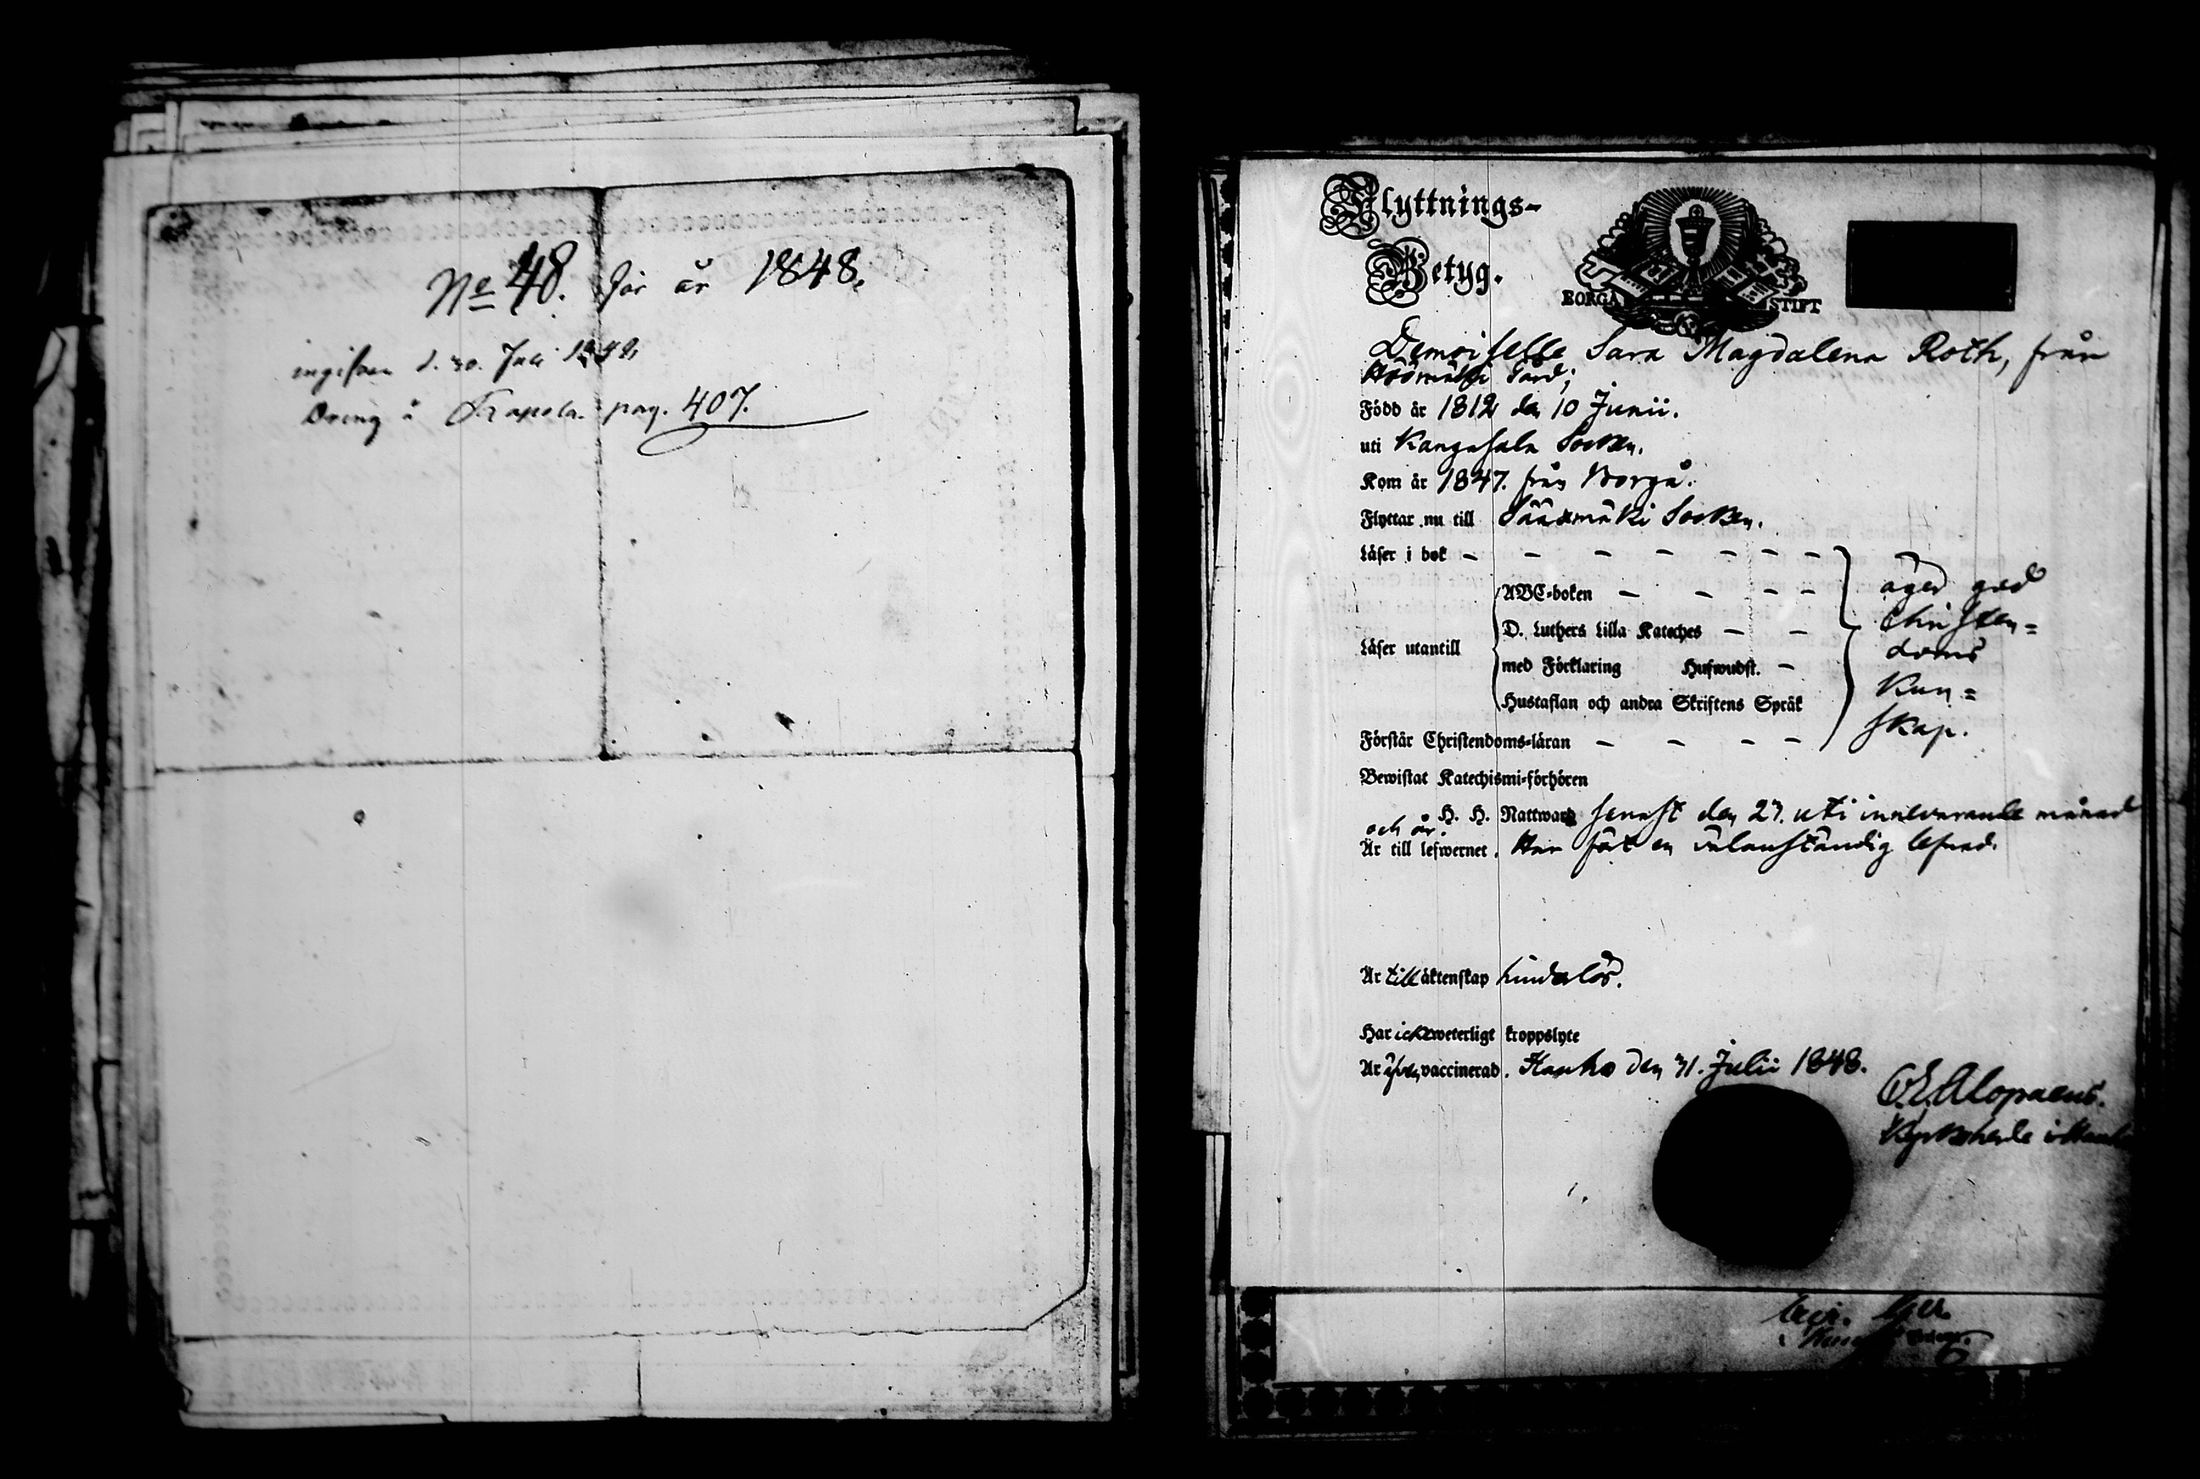 No 48. för år 1848.
ingifven d. 30. Juli 1848
Dreng å Rapola pag. 407.
Flyttnings-
Betyg.
BORGÅ STIFT
Demoiselle Sara Magdalena Roth, från
Gård;
Född år 1812 den 10 Junii.
uti Kangasala Socken.
Kom år 1847. från Borgå.
Flyttar nu till Sääxmäki Socken.
Läser i bok — — — — — — —
äger god
ABC-boken — — — —
Christen=
D. Luthers Lilla Kateches — —
Läser utantill
doms
med Förklaring Hufwudst. —
Kun=
Hustaflan och andra Skriftens Språk
skap.
Förstår Christendoms-läran — — — —
Bewistat Katechismi-förhören
H. H. Nattward senast den 27. uti innevarande månad
och år.
Är till lefwernet. Har fört en välanständig lefnad.
Är till äktenskap hinderlös.
Har icke weterligt kroppslyte
Är äfven vaccinerad. Hauho den 31. Julii 1848.
C. E. Alopaeus.
Kyrkoherde i Hauho